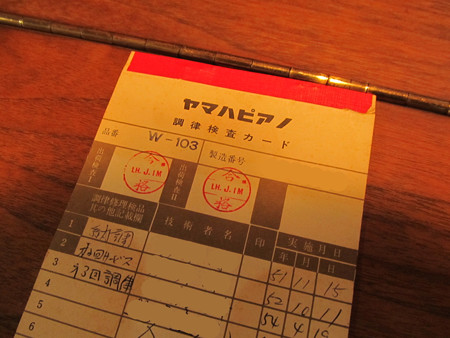 ヤマハピアノ
調律検査カード
品番 W-103 製造番号
出荷検査日 合格 LH.J.1M 出荷検査日 合格 LH.J.1M
調律修理検品其の他記載欄 技術者名 印 実施月日
年 月 日
1 51 11 15
2 52 10 11
3 第3回調律 54 4 19
4
5
6